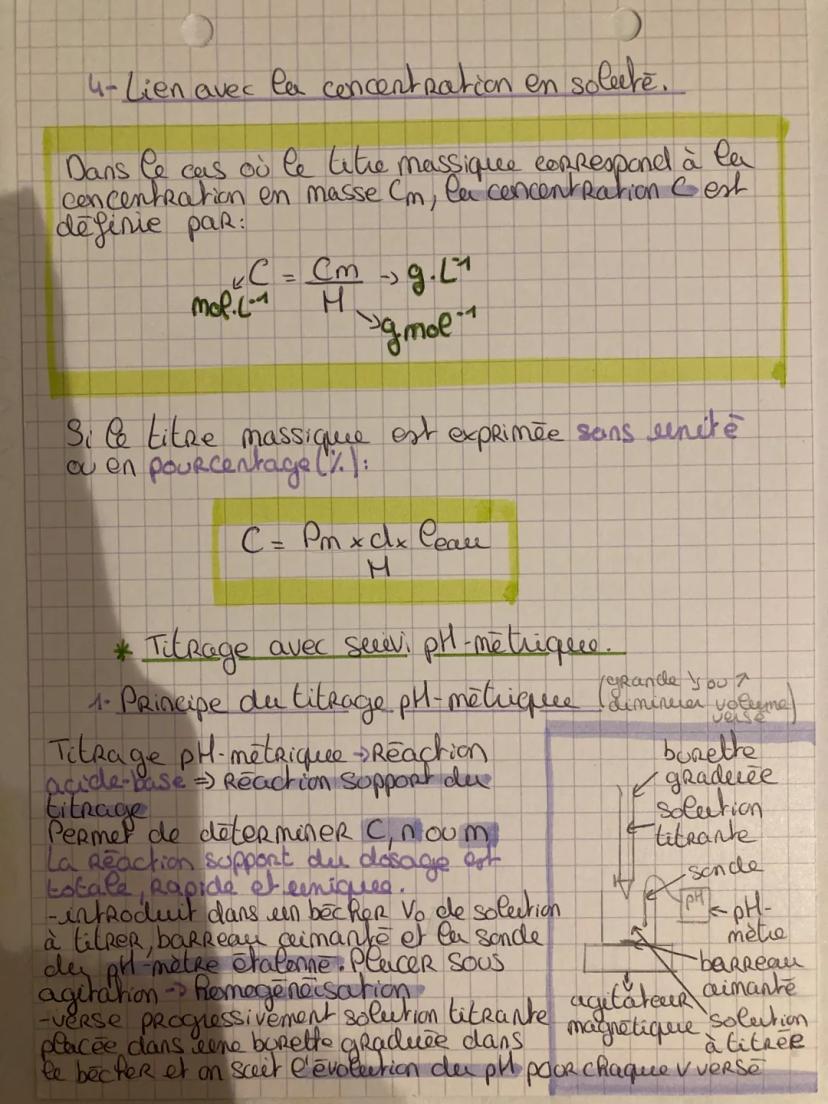 4- Lien avec la concentration en soluté.
Dans le cas où le titre massique correspond à la
concentration en masse Cm, la concentration C est
définie par:
C = Cm → g.L⁻¹
mol.L⁻¹ M
g.mol⁻¹
Si le titre massique est exprimée sans unité
ou en pourcentage (%):
C = Pm x d x ρeau
M
* Titrage avec suivi pH-métrique.
1- Principe du titrage pH-métrique (grande ↘ ou ↗
diminuer volume
versé)
Titrage pH-métrique → Réaction
acide-base ⇒ Réaction support du
titrage
Permet de déterminer C, n ou m
La Réaction support du dosage est
totale, rapide et unique.
-introduit dans un bécher V₀ de solution
à titrer, barreau aimanté et la sonde
du pH-mètre étalonné. Placer sous
agitation → Homogénéisation
-verse progressivement solution titrante
placée dans une burette graduée dans
le bécher et on suit l'évolution du pH pour chaque V versé
burette
graduée
solution
titrante
sonde
pH
pH-
mètre
barreau
aimanté
agitateur
magnétique
solution
à titrée